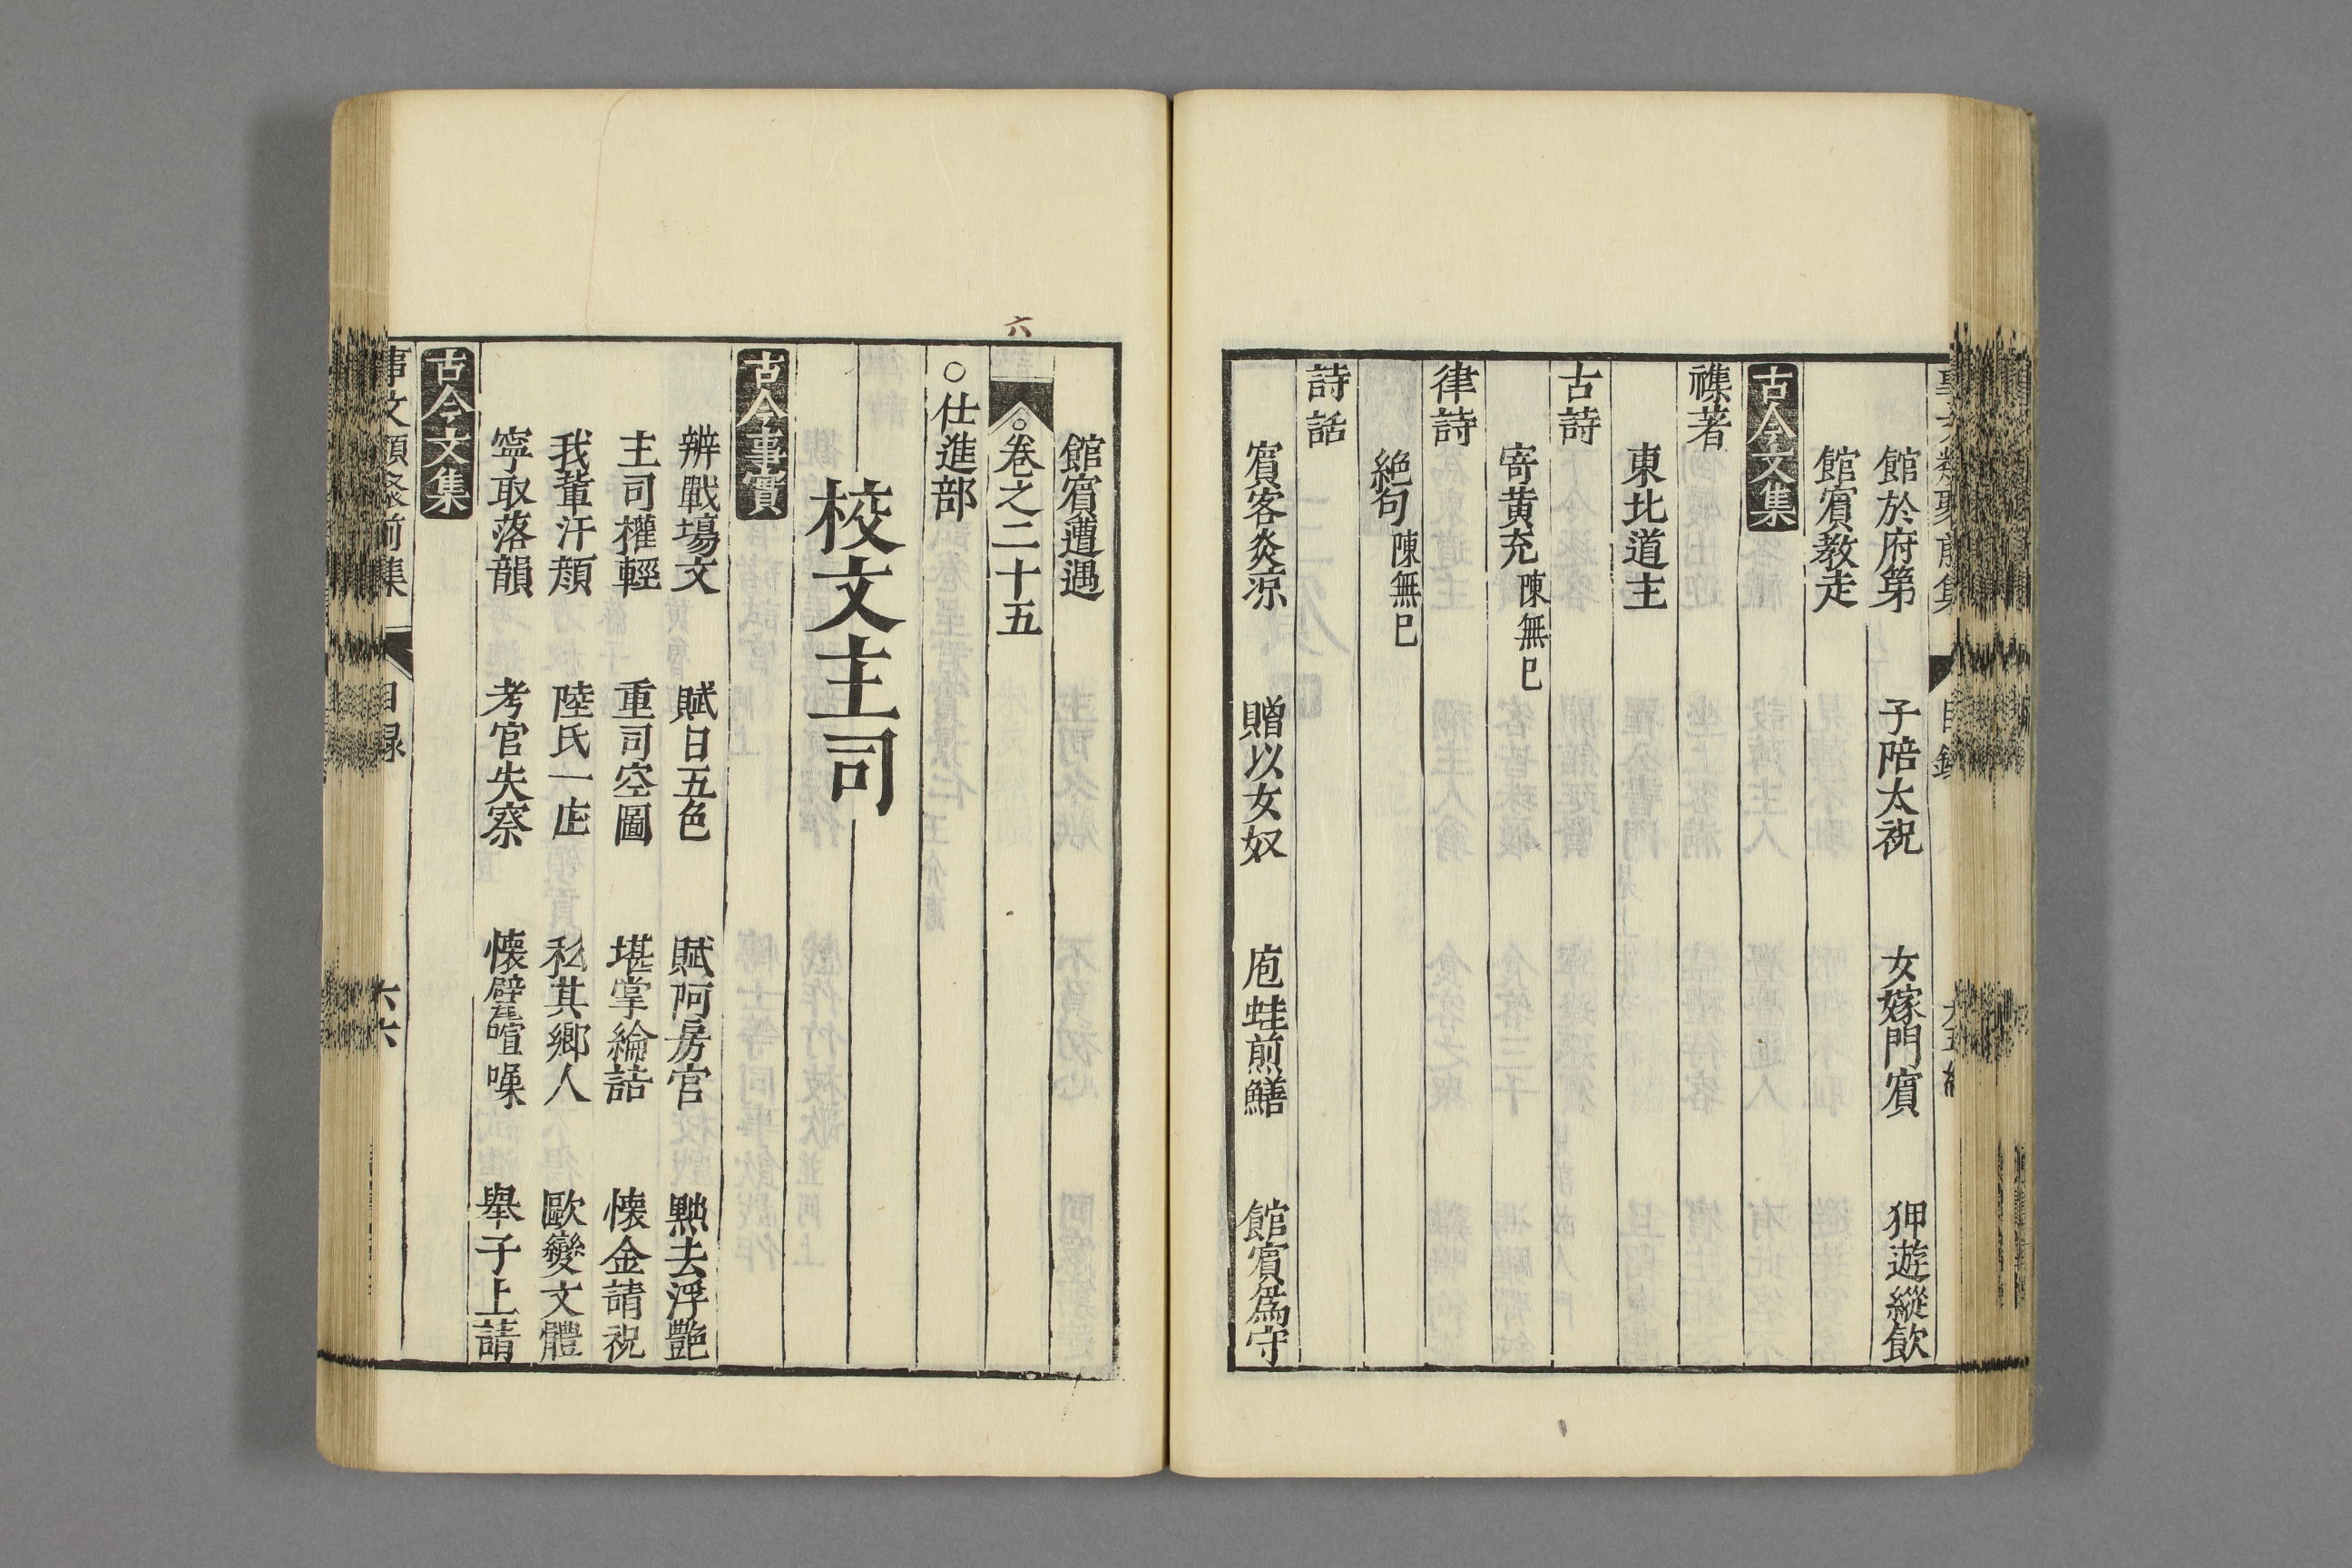 館於府第　子陪太祝　女嫁門賓　狎遊縱飲
館賓教走
古今文集
襍著
東北道主
古詩
寄黄充 陳無已
律詩
絶句 陳無已
詩話
賓客炎凉　贈以女奴　庖蛙煎鱔　館賓爲守
館賓遭遇
六
○卷之二十五
○仕進部
校文主司
古今事實
辨戰塲文　賦日五色　賦阿房官　黜去浮艷
主司權輕　重司空圖　堪掌綸誥　懐金請祝
我輩汗顔　陸氏一庄　私其鄉人　歐變文體
寧取落韻　考官失察　懐躄喧噪　舉子上請
古今文集
事文類聚前集 目録 六六